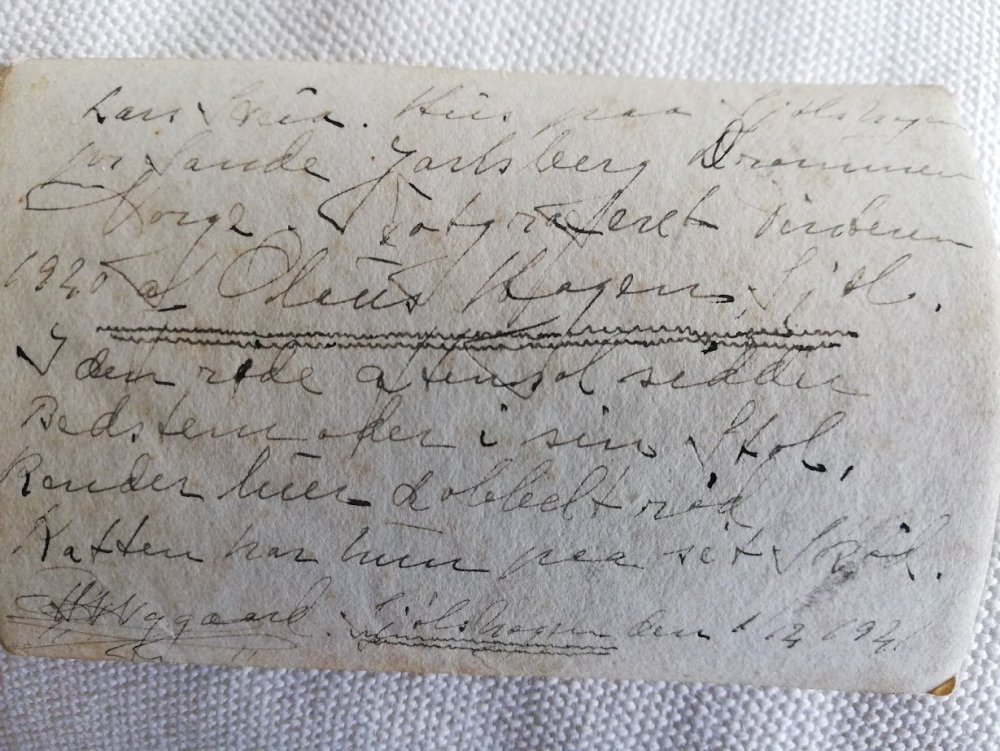 Lars Hus paa Sjølshagen
pr Sande Jarlsberg Drammen
Norge. Fotograferet Vinteren
af Olaus Hagen, Sjøl.
I den røde aftensol sidder
Bedstemoder i sin Stol,
Kinder huer dobbelt rød
Katten har hun paa sit Skød.
Nygaard. Sjølshagen den